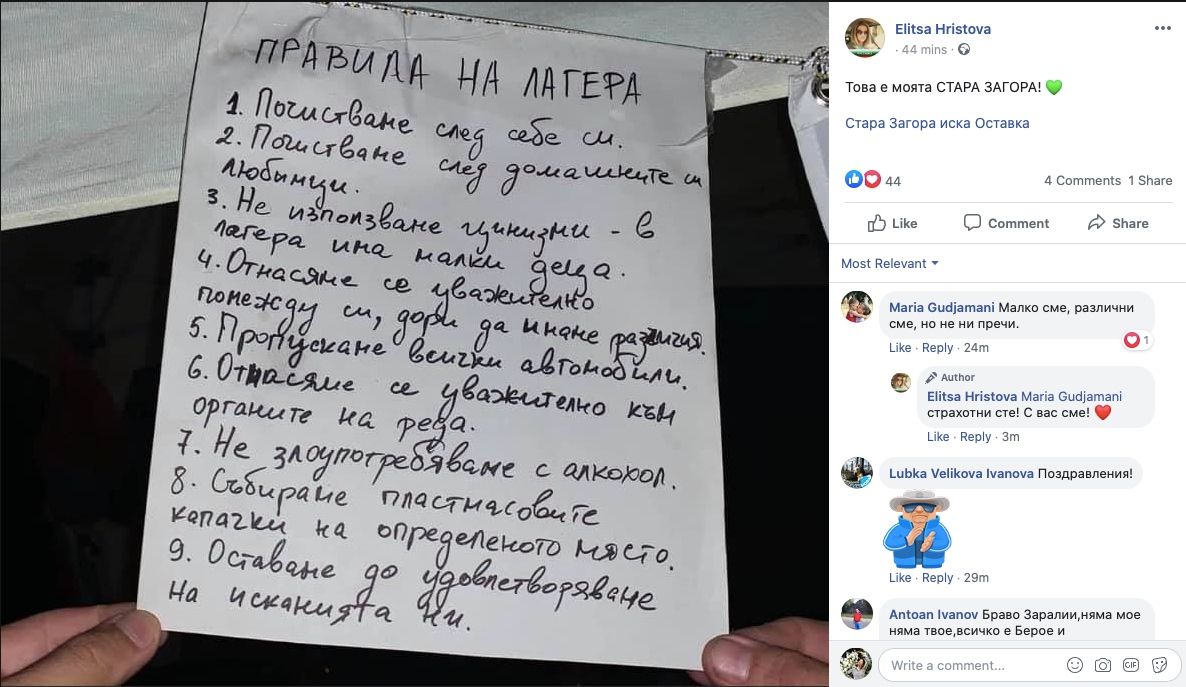 ПРАВИЛА НА ЛАГЕРА
1. Почистване след себе си.
2. Почистване след домашните си
любимци.
3. Не използване цинизми - в
лагера има малки деца.
4. Отнасяме се уважително
помежду си, дори да имаме различия.
5. Пропускаме всички автомобили.
6. Отнасяме се уважително към
органите на реда.
7. Не злоупотребяваме с алкохол.
8. Събираме пластмасовите
капачки на определеното място.
9. Оставаме до удовлетворяване
на исканията ни.
Elitsa Hristova
· 44 mins ·
Това е моята СТАРА ЗАГОРА! 💚
Стара Загора иска Оставка
44
4 Comments 1 Share
Like Comment Share
Most Relevant
Maria Gudjamani Малко сме, различни
сме, но не ни пречи.
1
Like · Reply · 24m
Author
Elitsa Hristova Maria Gudjamani
страхотни сте! С вас сме! ❤️
Like · Reply · 3m
Lubka Velikova Ivanova Поздравления!
Like · Reply · 29m
Antoan Ivanov Браво Заралии,няма мое
няма твое,всичко е Берое и
Write a comment...
GIF